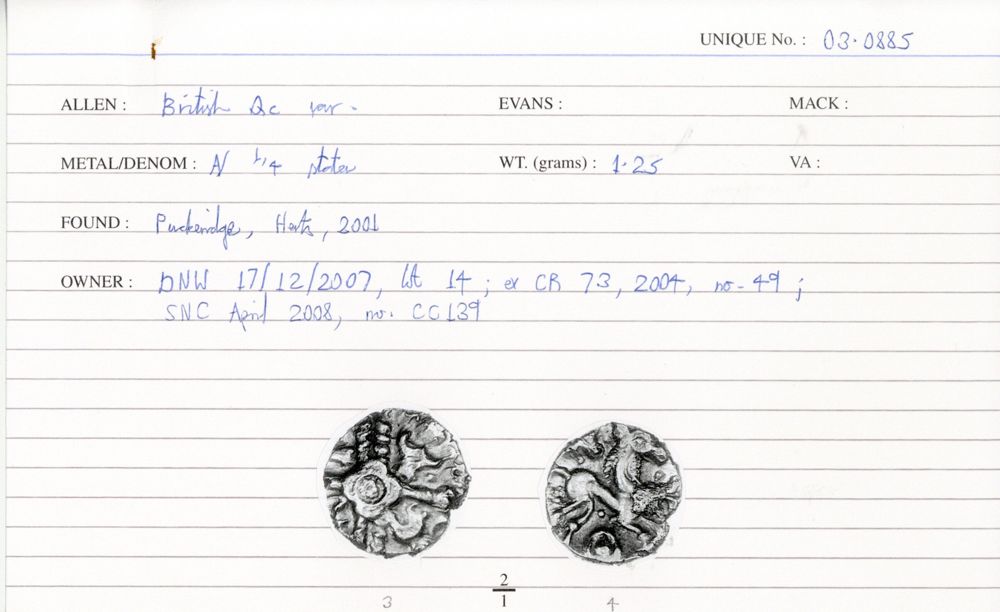 UNIQUE No. : 03·0885
ALLEN : British Qc var. EVANS : MACK :
METAL/DENOM : A/ 1/4 stater WT. (grams) : 1·25 VA :
FOUND : Puckeridge, Herts, 2001
OWNER : DNW 17/12/2007, lot 14 ; ex CR 73, 2004, no. 49 ;
SNC April 2008, no. CC139
2
3 1 4